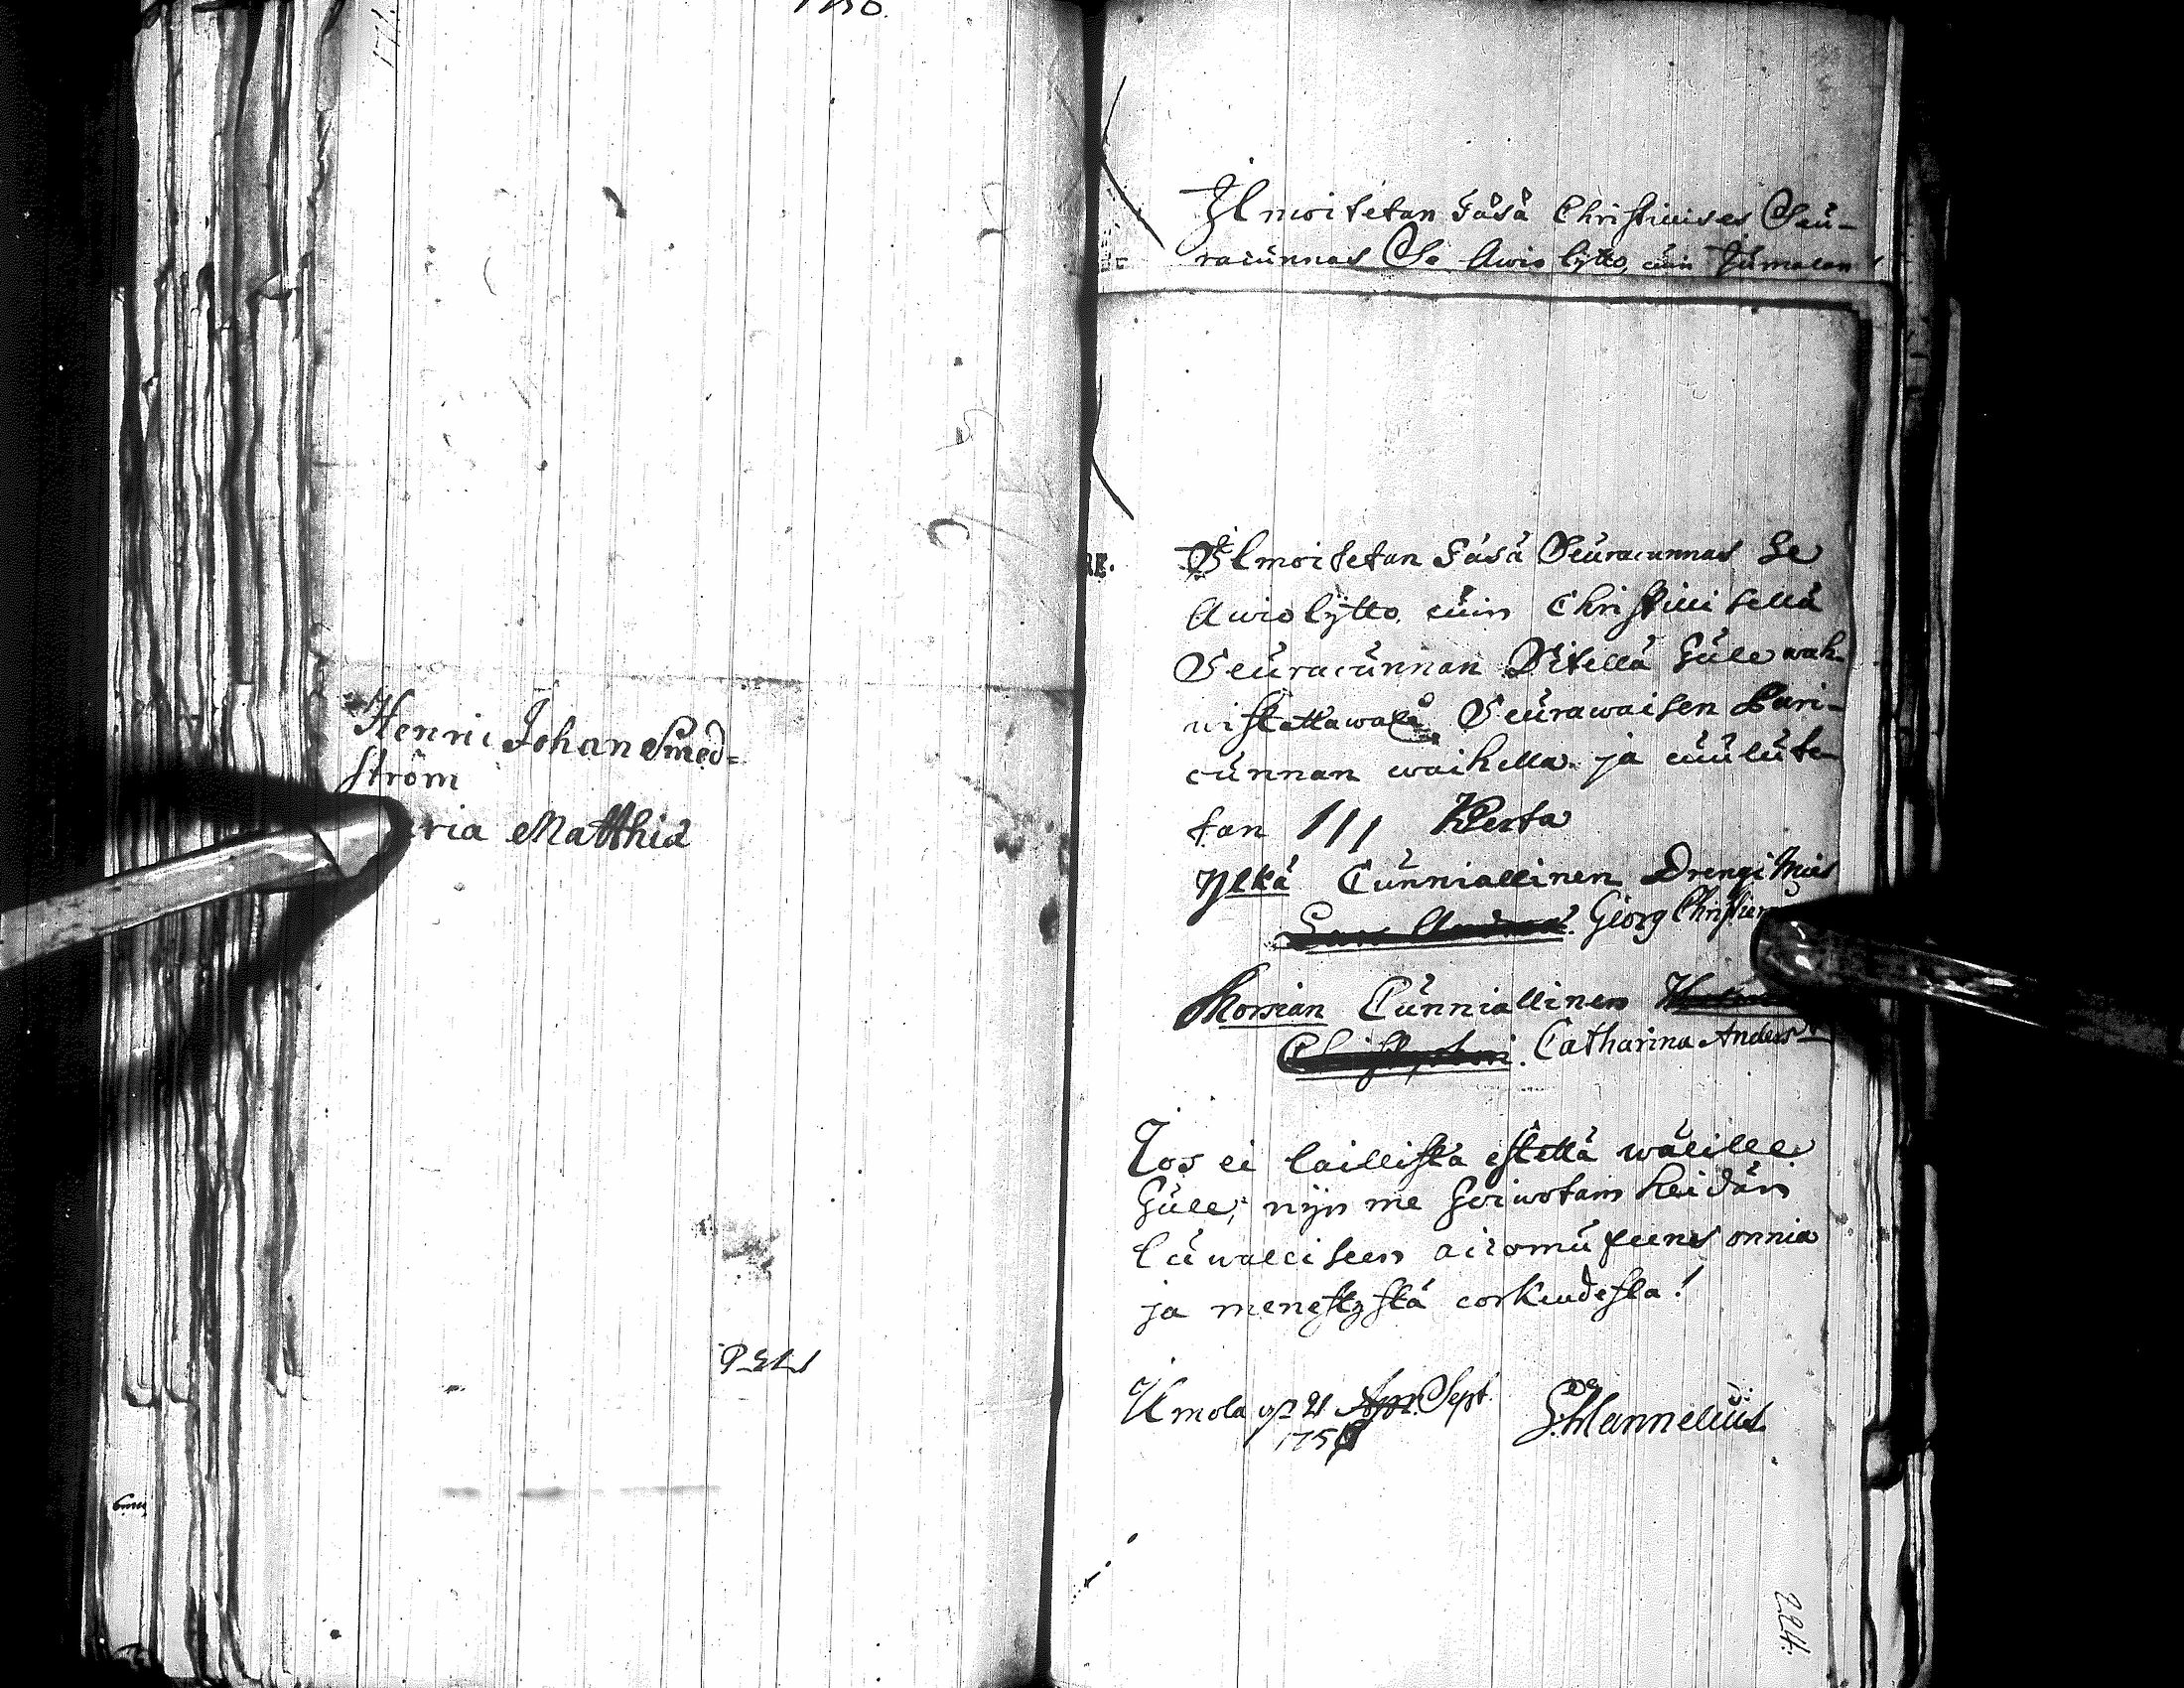 Henric Johan Smed=
ström
ria Matthid
Ilmoitetan täsä Christillises Seu-
racunnas Se Awiolijtto, cuin Jumalan
RE.
Ilmoitetan täsä Seuracunnas Se
Awiolijtto cuin Christillisellä
Seuracunnan Sitellä tule wah-
wistettawaxi Seurawaisen Pari-
cunnan waihella ja cuulute-
tan /// Kerta
Yljkä Cunniallinen Drengi Mies
Georg Christier
Morsian Cunniallinen
Catharina Anders
Jos ei laillista estettä wälille
tule, nijn me toiwotam heidän
luwalliseen aicomuxeens onnia
ja menestystä corkeudesta!
Kimola 21 Sept.
175
S. Mannelius
224.